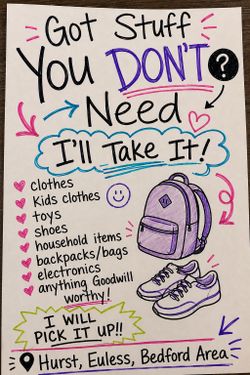 Got Stuff
You DON'T
Need ?
I'll Take It!
clothes
Kids clothes
toys
shoes
household items
backpacks/bags
electronics
anything Goodwill
worthy!
I WILL
PICK IT UP!!
Hurst, Euless, Bedford Area